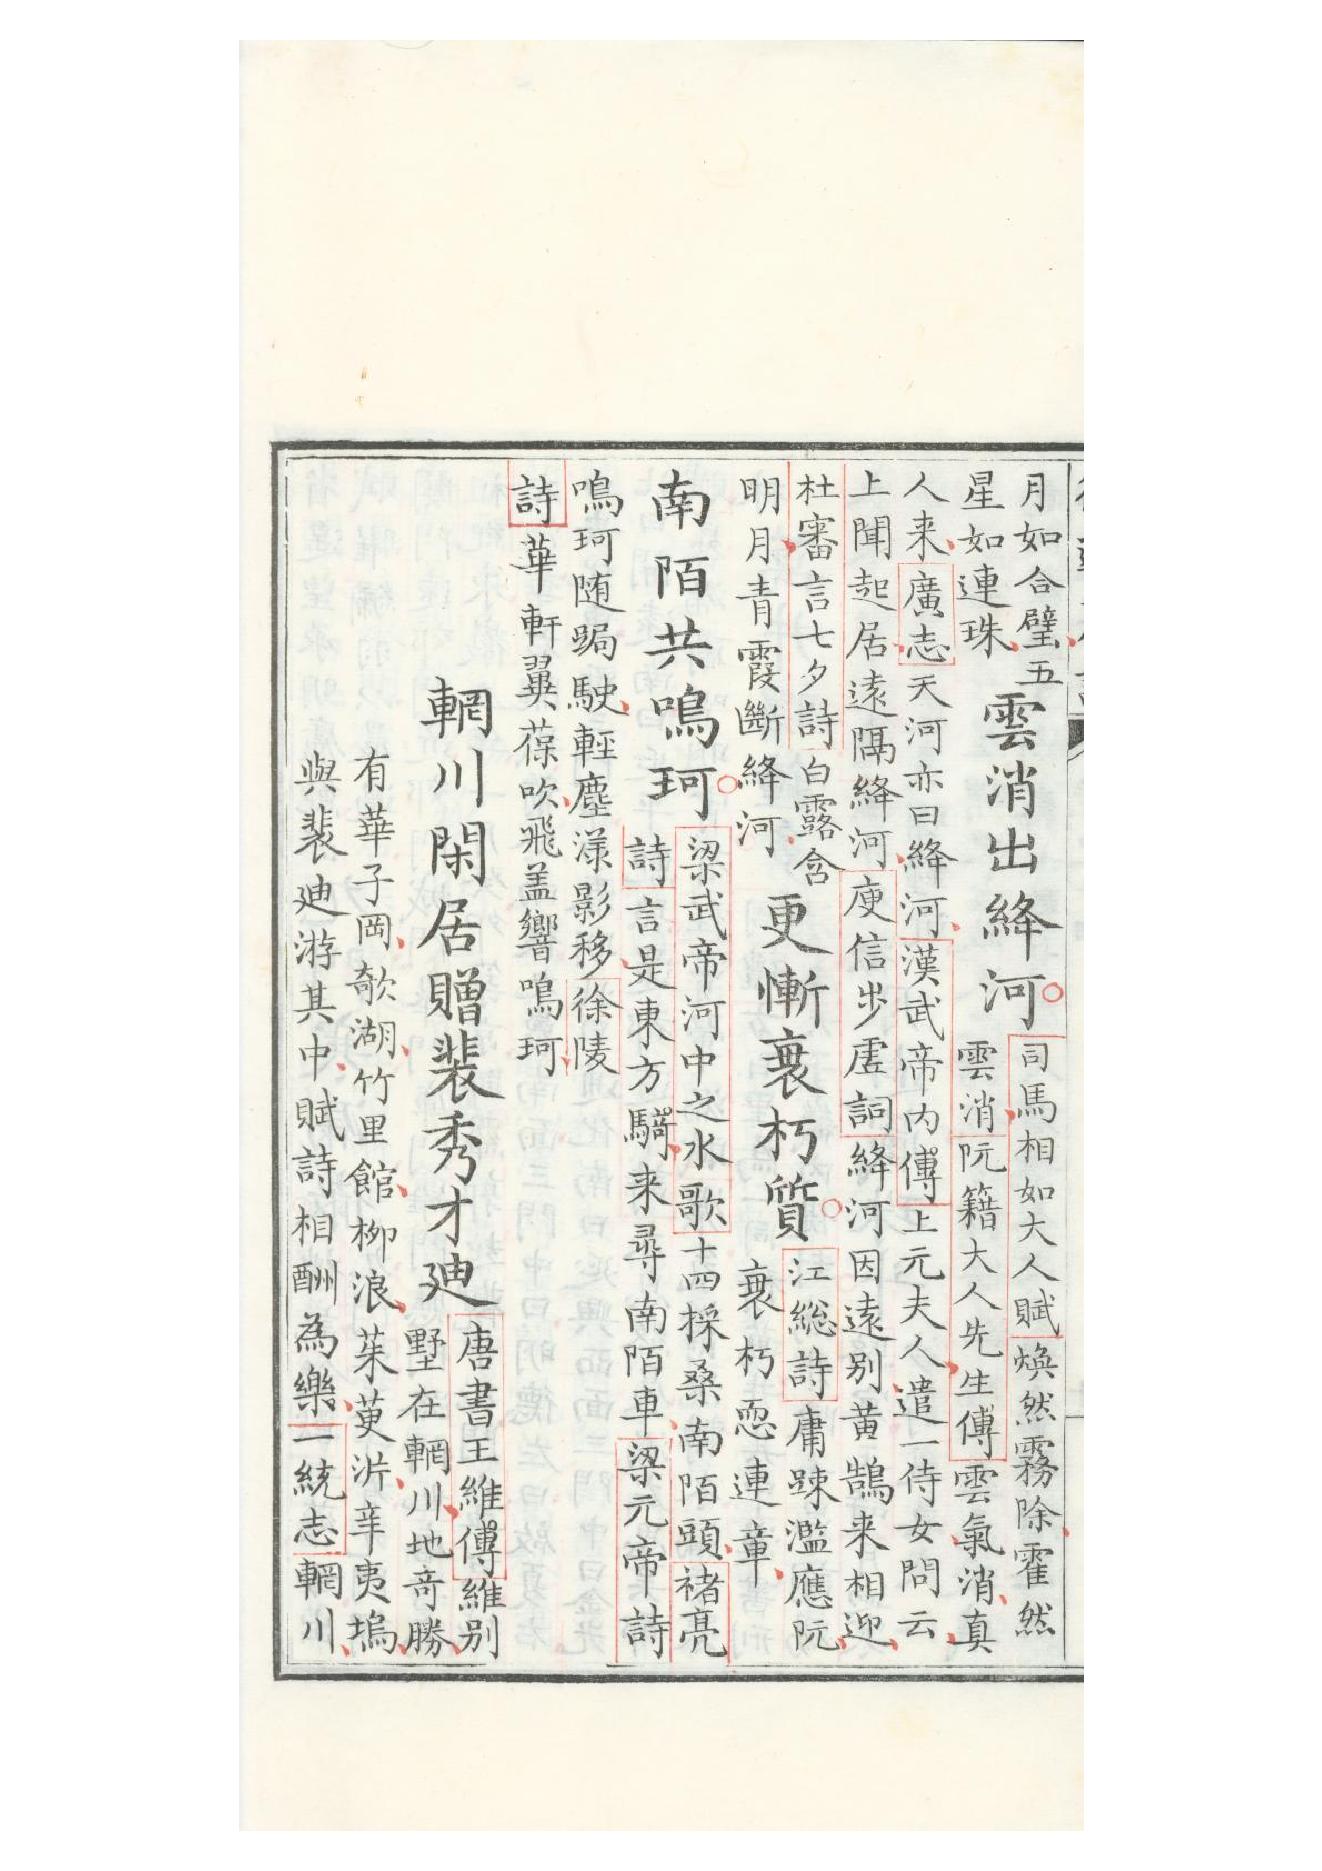 月如合璧五
星如連珠
雲消出絳河
司馬相如大人賦煥然霧除霍然
雲消阮籍大人先生傳雲氣消真
人来廣志天河亦曰絳河漢武帝内傳上元夫人遣一侍女問云
上聞起居遠隔絳河庾信步虚詞絳河因遠别黄鵠来相迎
杜審言七夕詩白露含
明月青霞斷絳河
更慚衰朽質
江緫詩庸踈濫應阮
衰朽恧連章
南陌共鳴珂
梁武帝河中之水歌十四採桑南陌頭褚亮
詩言是東方騎来尋南陌車梁元帝詩
鳴珂随跼駛輕塵漾影移徐陵
詩華軒翼葆吹飛盖響鳴珂
輞川閑居贈裴秀才廸
唐書王維傳維别
墅在輞川地竒勝
有華子岡欹湖竹里館柳浪茱萸沜辛夷塢
與裴廸游其中賦詩相酬為樂一統志輞川